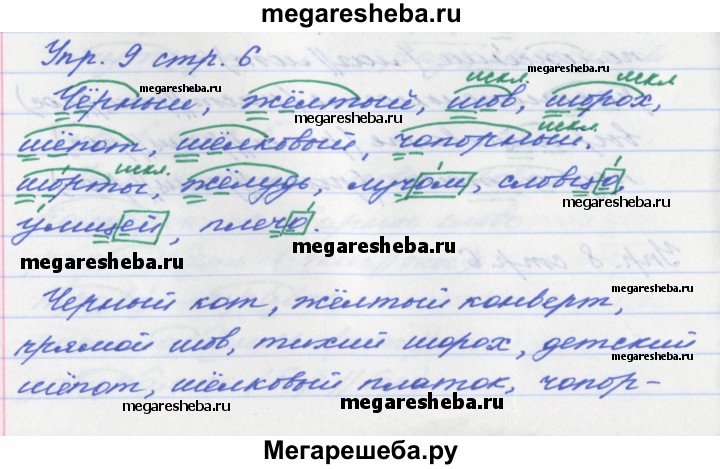 megaresheba.ru
Упр. 9 стр. 6
megaresheba.ru
искл. искл
Чёрный, жёлтый, шов, шорох,
megaresheba.ru
megaresheba.ru
искл.
шёпот, шёлковый, чопорный.
megaresheba.ru
искл.
шорты, жёлудь, мучом, словцо,
улицей, плечо.
megaresheba.ru
megaresheba.ru
megaresheba.ru
Черный кот, жёлтый конверт,
прямой шов, тихий шорох, детский
megaresheba.ru
шёпот, шёлковый платок, чопор-
megaresheba.ru
megaresheba.ru
Мегарешеба.ру